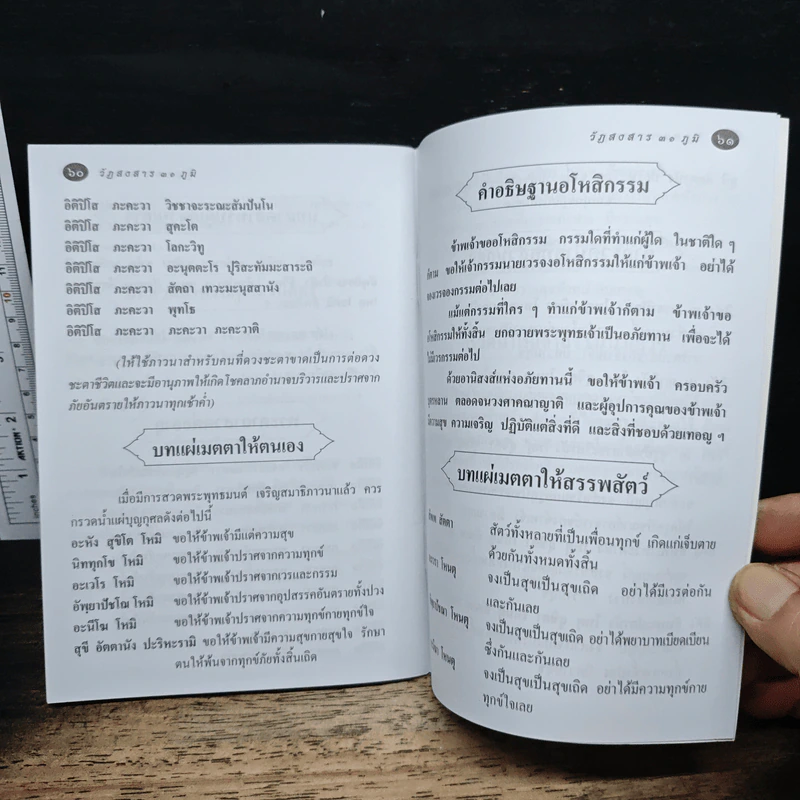 ๖๐ วัฏสงสาร ๓๑ ภูมิ
อิติปิโส ภะคะวา วิชชาจะระณะสัมปันโน
อิติปิโส ภะคะวา สุคะโต
อิติปิโส ภะคะวา โลกะวิทู
อิติปิโส ภะคะวา อะนุตตะโร ปุริสะทัมมะสาระถิ
อิติปิโส ภะคะวา สัตถา เทวะมะนุสสานัง
อิติปิโส ภะคะวา พุทโธ
อิติปิโส ภะคะวา ภะคะวา ภะคะวาติ
(ให้ใช้ภาวนาสำหรับคนที่ดวงชะตาขาดเป็นการต่อดวง
ชะตาชีวิตและจะมีอานุภาพให้เกิดโชคลาภอำนาจบริวารและปราศจาก
ภัยอันตรายให้ภาวนาทุกเช้าค่ำ)
บทแผ่เมตตาให้ตนเอง
เมื่อมีการสวดพระพุทธมนต์ เจริญสมาธิภาวนาแล้ว ควร
กรวดน้ำแผ่บุญกุศลดังต่อไปนี้
อะหัง สุขิโต โหมิ ขอให้ข้าพเจ้ามีแต่ความสุข
นิททุกโข โหมิ ขอให้ข้าพเจ้าปราศจากความทุกข์
อะเวโร โหมิ ขอให้ข้าพเจ้าปราศจากเวรและกรรม
อัพฺยาปัชโฌ โหมิ ขอให้ข้าพเจ้าปราศจากอุปสรรคอันตรายทั้งปวง
อะนีโฆ โหมิ ขอให้ข้าพเจ้าปราศจากความทุกข์กายทุกข์ใจ
สุขี อัตตานัง ปะริหะรามิ ขอให้ข้าพเจ้ามีความสุขกายสุขใจ รักษา
ตนให้พ้นจากทุกข์ภัยทั้งสิ้นเถิด
วัฏสงสาร ๓๑ ภูมิ ๖๑
คำอธิษฐานอโหสิกรรม
ข้าพเจ้าขออโหสิกรรม กรรมใดที่ทำแก่ผู้ใด ในชาติใด ๆ
ก็ตาม ขอให้เจ้ากรรมนายเวรจงอโหสิกรรมให้แก่ข้าพเจ้า อย่าได้
จองเวรจองกรรมต่อไปเลย
แม้แต่กรรมที่ใคร ๆ ทำแก่ข้าพเจ้าก็ตาม ข้าพเจ้าขอ
อโหสิกรรมให้ทั้งสิ้น ยกถวายพระพุทธเจ้าเป็นอภัยทาน เพื่อจะได้
ไม่มีเวรกรรมต่อไป
ด้วยอานิสงส์แห่งอภัยทานนี้ ขอให้ข้าพเจ้า ครอบครัว
ตลอดจนวงศาคณาญาติ และผู้อุปการคุณของข้าพเจ้า
มีความสุข ความเจริญ ปฏิบัติแต่สิ่งที่ดี และสิ่งที่ชอบด้วยเทอญ ฯ
บทแผ่เมตตาให้สรรพสัตว์
สัตตา สัตว์ทั้งหลายที่เป็นเพื่อนทุกข์ เกิดแก่เจ็บตาย
ด้วยกันทั้งหมดทั้งสิ้น
โหนตุ จงเป็นสุขเป็นสุขเถิด อย่าได้มีเวรต่อกัน
และกันเลย
โหนตุ จงเป็นสุขเป็นสุขเถิด อย่าได้พยาบาทเบียดเบียน
ซึ่งกันและกันเลย
โหนตุ จงเป็นสุขเป็นสุขเถิด อย่าได้มีความทุกข์กาย
ทุกข์ใจเลย